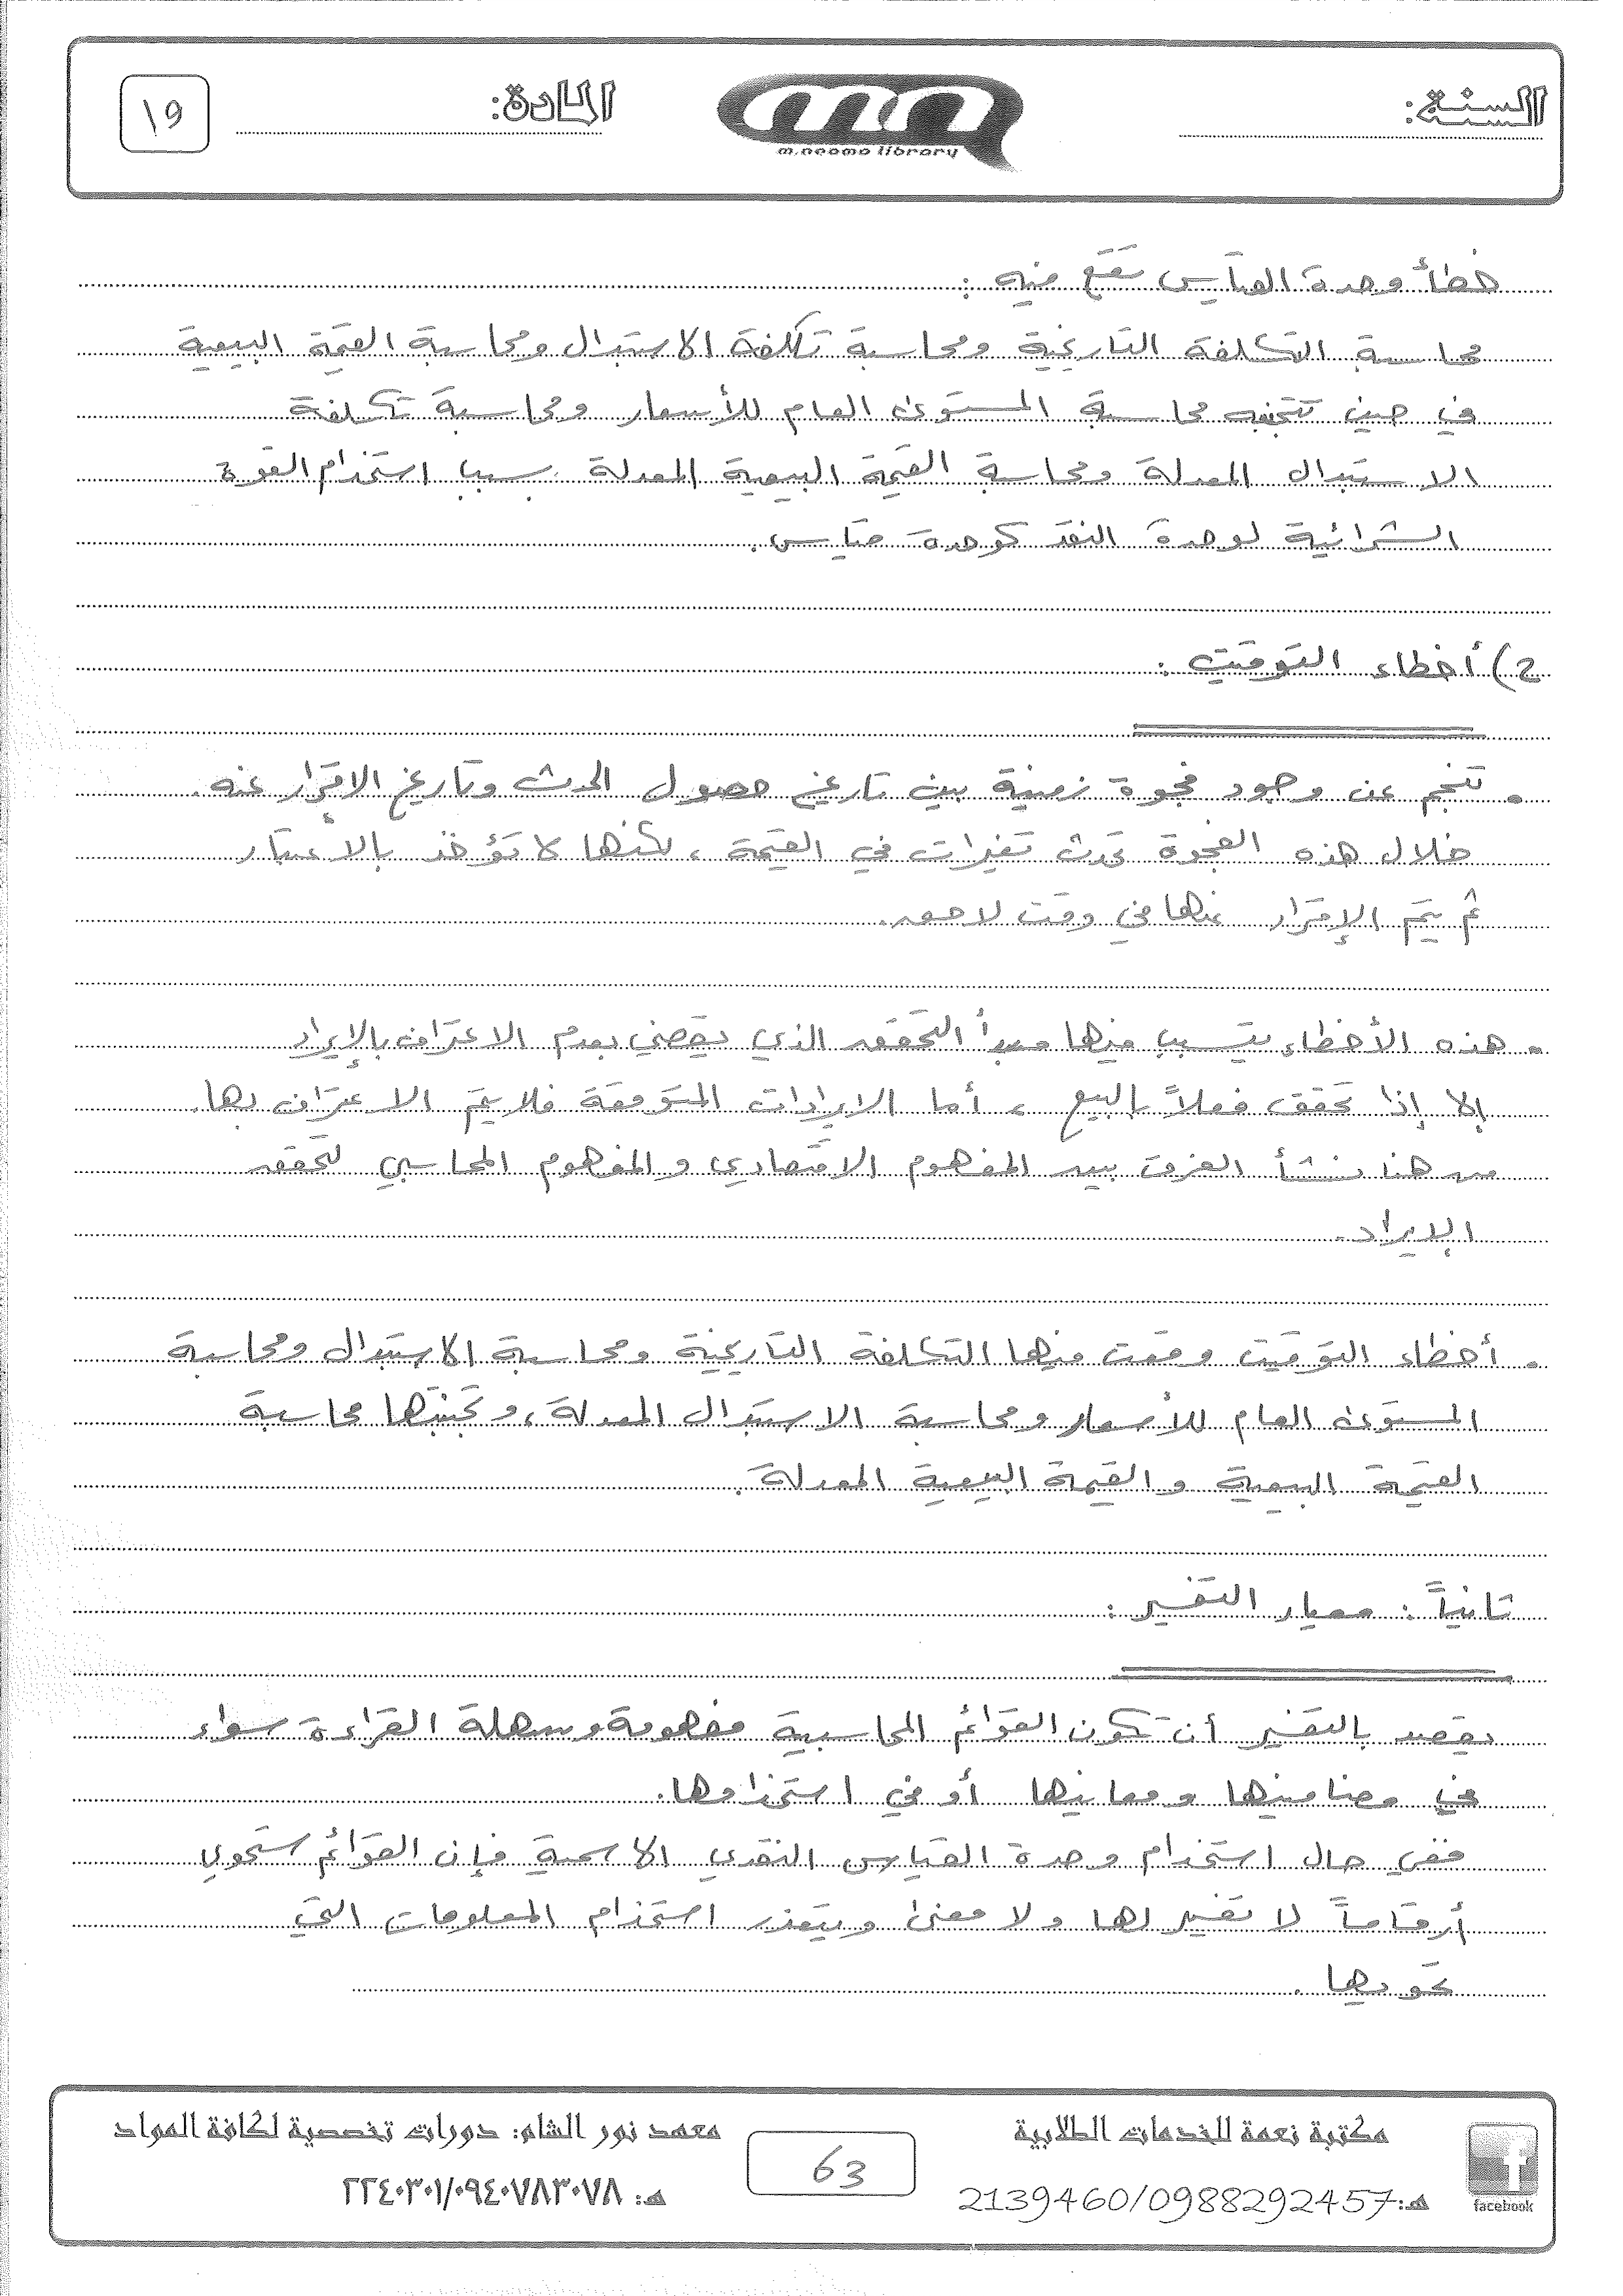 السنة:
m.neama library
المادة:
١٩
خطأ وحدة القياس تقع فيه :
محاسبة التكلفة التاريخية ومحاسبة تكلفة الاستبدال ومحاسبة القيمة البيعية
في حين تتجنبه محاسبة المستوى العام للأسعار ومحاسبة تكلفة
الاستبدال المعدلة ومحاسبة القيمة البيعية المعدلة بسبب استخدام القوة
الشرائية لوحدة النقد كوحدة قياس.
2) أخطاء التوقيت :
• تنجم عن وجود فجوة زمنية بين تاريخ حصول الحدث وتاريخ الاقرار عنه.
خلال هذه الفجوة تحدث تغيرات في القيمة ، لكنها لا تؤخذ بالاعتبار
ثم يتم الإقرار عنها في وقت لاحق.
• هذه الأخطاء يتسبب فيها مبدأ التحقق الذي يقضي بعدم الاعتراف بالإيراد
إلا إذا تحقق فعلاً بالبيع ، أما الايرادات المتوقعة فلا يتم الاعتراف بها.
من هنا نشأ الفرق بين المفهوم الاقتصادي و المفهوم المحاسبي لتحقق
الإيراد.
• أخطاء التوقيت وقعت فيها التكلفة التاريخية ومحاسبة الاستبدال ومحاسبة
المستوى العام للأسعار ومحاسبة الاستبدال المعدلة ، و تجنبتها محاسبة
القيمة البيعية و القيمة البيعية المعدلة .
ثانياً : معيار التفسير :
يقصد بالتفسير أن تكون القوائم المحاسبية مفهومة وسهلة القراءة سواء
في مضامينها ومعانيها أو في استخدامها.
ففي حال استخدام وحدة القياس النقدي الاسمية فإن القوائم ستحوي
أرقاماً لا تفسير لها ولا معنى ويتعذر استخدام المعلومات التي
تحويها .
مكتبة نعمة للخدمات الطلابية
هـ: 2139460/0988292457
63
معهد نور الشام: دورات تخصصية لكافة المواد
هـ: ٢٢٤٠٣٠١/٠٩٤٠٧٨٣٠٧٨
facebook